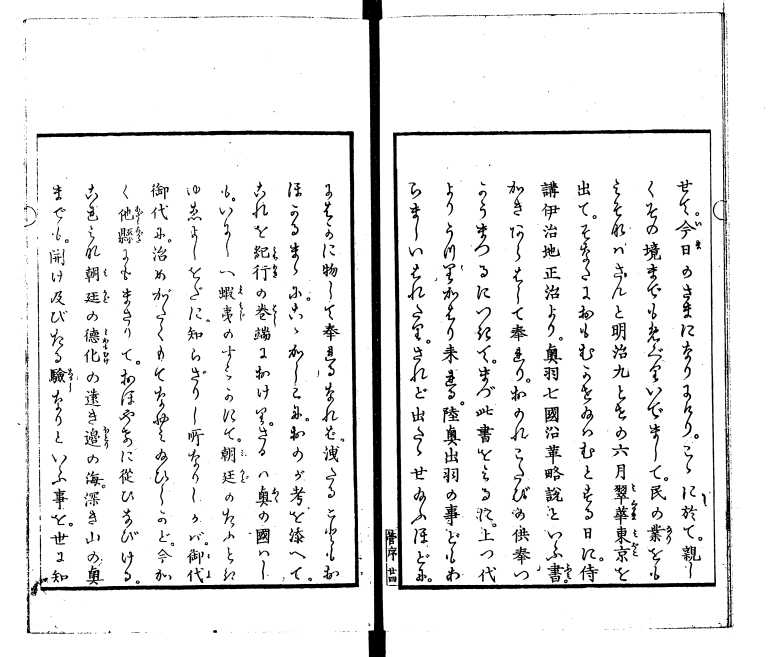 せて。今日のさまになりにたり。こゝに於て。親し
くその境までも見そなはし
いでまして。民の業をも
みそなはさんと明治九とせの六月翠華東京を
出て。そなたにおもむかせたまはむとする日に。侍
講伊地知正治より。奥羽七國沿革略説といふ書
かきあらはして奉り。おのれこたびの供奉つ
かうまつるにつきて。まづ此書をみるに。上つ代
より うつりかはり来る。陸奥出羽の事どもわ
らましいはれたり。されど出たゝせたまふほどに。
にはかに物して奉れるなれば。洩たることもお
ほかるまゝに。こゝかしこに。おのが考を添へて。
これを紀行の巻端におけり。さるは奥の國はし
も。いにしへ蝦夷の すみかにて。朝廷の たふとき
ゆゑよしをだに知らざりし所なりしが。御代
御代に。治めがたくもて なやみたまひしかど。今か
く他縣にもまさりて。おほやけに從ひなびける。
これみな朝廷の德化の遠き邉の海。深き山の奥
までも。開け及びたる驗なりといふ事を。世に知
菅序 廿四